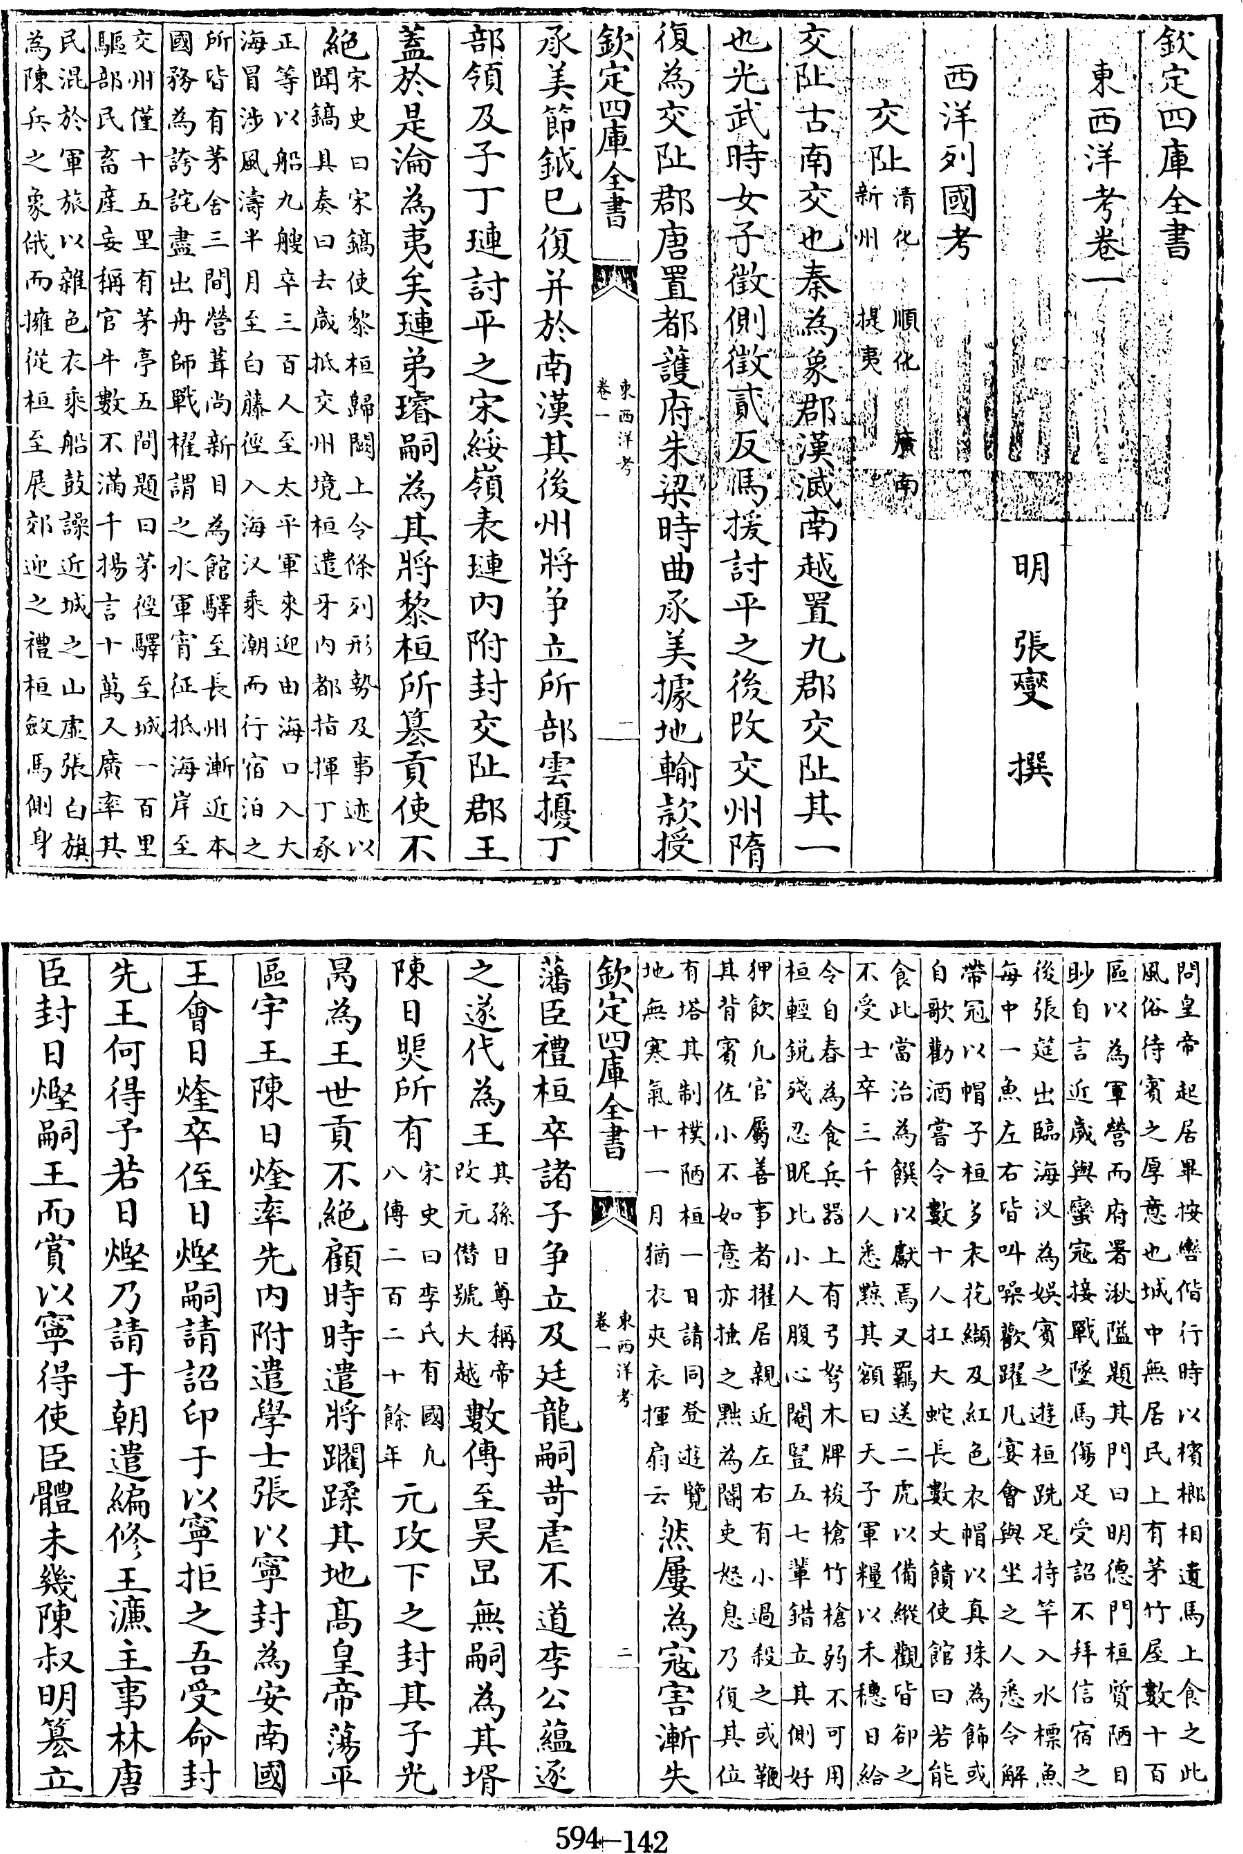 欽定四庫全書
東西洋考卷一
明 張燮 撰
西洋列國考
交阯 清化 順化 廣南
新州 提夷
交阯古南交也秦為象郡漢滅南越置九郡交阯其一
也光武時女子徵側徵貳反馬援討平之後改交州隋
復為交阯郡唐置都護府朱梁時曲承美據地輸款授
欽定四庫全書
東西洋考
卷一
一
承美節鉞已復并於南漢其後州將爭立所部雲擾丁
部領及子丁璉討平之宋綏嶺表璉內附封交阯郡王
蓋於是淪為夷矣璉弟璿嗣為其將黎桓所篡貢使不
絕
宋史曰宋鎬使黎桓歸闕上令條列形勢及事迹以
聞鎬具奏曰去歲抵交州境桓遣牙內都指揮丁承
正等以船九艘卒三百人至太平軍來迎由海口入大
海冒涉風濤半月至白藤徑入海汊乘潮而行宿泊之
所皆有茅舍三間營葺尚新目為館驛至長州漸近本
國務為誇詫盡出舟師戰櫂謂之水軍宵征抵海岸至
交州僅十五里有茅亭五間題曰茅徑驛至城一百里
驅部民畜產妄稱官牛數不滿千揚言十萬又廣率其
民混於軍旅以雜色衣乘船鼓譟近城之山虛張白旗
為陳兵之象俄而擁從桓至展郊迎之禮桓斂馬側身
問皇帝起居畢按轡偕行時以檳榔相遺馬上食之此
風俗待賓之厚意也城中無居民上有茅竹屋數十百
區以為軍營而府署湫隘題其門曰明德門桓質陋目
眇自言近歲與蠻寇接戰墜馬傷足受詔不拜信宿之
後張筵出臨海汊為娛賓之遊桓跣足持竿入水標魚
每中一魚左右皆叫噪歡躍凡宴會與坐之人悉令解
帶冠以帽子桓多衣花纈及紅色衣帽以真珠為飾或
自歌勸酒嘗令數十人扛大蛇長數丈饋使館曰若能
食此當治為饌以獻焉又羈送二虎以備縱觀皆卻之
不受士卒三千人悉黥其額曰天子軍糧以禾穗日給
令自舂為食兵器上有弓弩木牌梭槍竹槍弱不可用
桓輕銳殘忍昵比小人腹心閹豎五七輩錯立其側好
狎飲凡官屬善事者擢居親近左右有小過殺之或鞭
其背賓佐小不如意亦捶之黥為閽吏怒息乃復其位
有塔其制樸陋桓一日請同登遊覽
地無寒氣十一月猶衣夾衣揮扇云
然屢為寇害漸失
欽定四庫全書
東西洋考
卷一
二
藩臣禮桓卒諸子爭立及廷龍嗣苛虐不道李公蘊逐
之遂代為王
其孫日尊稱帝
改元僭號大越
數傳至昊旵無嗣為其壻
陳日煚所有
宋史曰李氏有國凡
八傳二百二十餘年
元攻下之封其子光
昺為王世貢不絕顧時時遣將躪蹂其地高皇帝蕩平
區宇王陳日煃率先內附遣學士張以寧封為安南國
王會日煃卒侄日熞嗣請詔印于以寧拒之吾受命封
先王何得予若日熞乃請于朝遣編修王濂主事林唐
臣封日熞嗣王而賞以寧得使臣體未幾陳叔明篡立
594-142